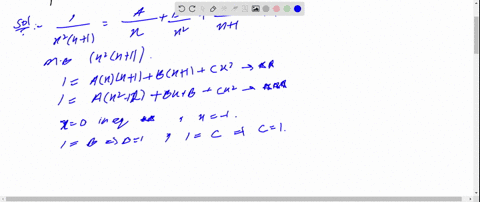 Sol :- 1/x²(x+1) = A/x + B/x² + /x+1
M.B (x²(x+1)).
1 = A(x)(x+1) + B(x+1) + Cx² →
1 = A(x²+x) + Bx+B + Cx² →
x=0 in eq , x=-1.
1 = B ⇒ B=1 , 1 = C ⇒ C=1.